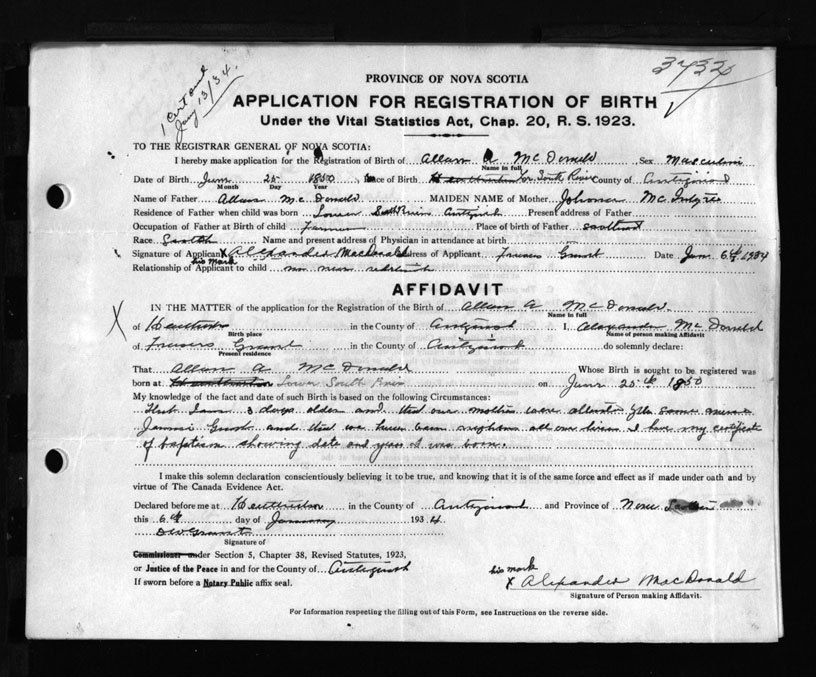 1 Cert and
Jany 13/34.
3432
PROVINCE OF NOVA SCOTIA
APPLICATION FOR REGISTRATION OF BIRTH
Under the Vital Statistics Act, Chap. 20, R. S. 1923.
TO THE REGISTRAR GENERAL OF NOVA SCOTIA:
I hereby make application for the Registration of Birth of Allan A McDonald Sex Masculine
Name in full
Date of Birth June 25 1850, Place of Birth Lr South River County of Antigonish
Month Day Year
Name of Father Allan McDonald MAIDEN NAME of Mother Johanna McIntyre
Residence of Father when child was born Lower South River Antigonish Present address of Father
Occupation of Father at Birth Farmer Place of birth of Father Scotland
Race Scotch Name and present address of Physician in attendance at birth
Signature of Applicant X Alexander MacDonald Address of Applicant Frasers Grant Date Jan 6th 1934
his mark
Relationship of Applicant to child no near relative
AFFIDAVIT
IN THE MATTER of the application for the Registration of the Birth of Allan A McDonald.
Name in full
of Heatherton in the County of Antigonish I, Alexander McDonald
Birth place Name of person making Affidavit
of Frasers Grant in the County of Antigonish do solemnly declare:
Present residence
That Allan A McDonald Whose Birth is sought to be registered was
born at Lower South River on June 25th 1850
My knowledge of the fact and date of such Birth is based on the following Circumstances:
That I am 3 days older and that our mothers were attended by the same nurse
Grant and that we have been neighbors all our lives I have my certificate
of baptism showing date and year I was born.
I make this solemn declaration conscientiously believing it to be true, and knowing that it is of the same force and effect as if made under oath and by
virtue of The Canada Evidence Act.
Declared before me at Heatherton in the County of Antigonish and Province of Nova Scotia
this 6th day of January 1934
Signature of
Commissioner under Section 5, Chapter 38, Revised Statutes, 1923,
or Justice of the Peace in and for the County of Antigonish
If sworn before a Notary Public affix seal.
his mark
X Alexander MacDonald
Signature of Person making Affidavit.
For Information respecting the filling out of this Form, see Instructions on the reverse side.